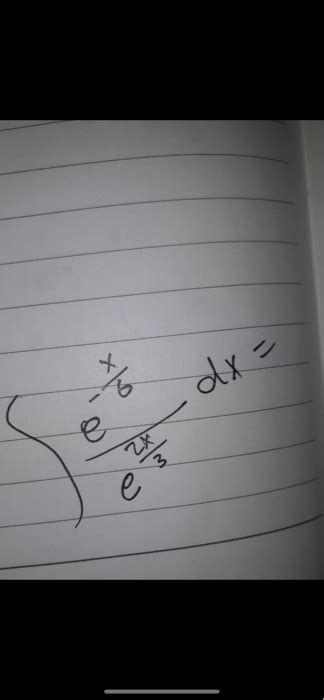 ∫ e^{-x/6} / e^{2x/3} dx =